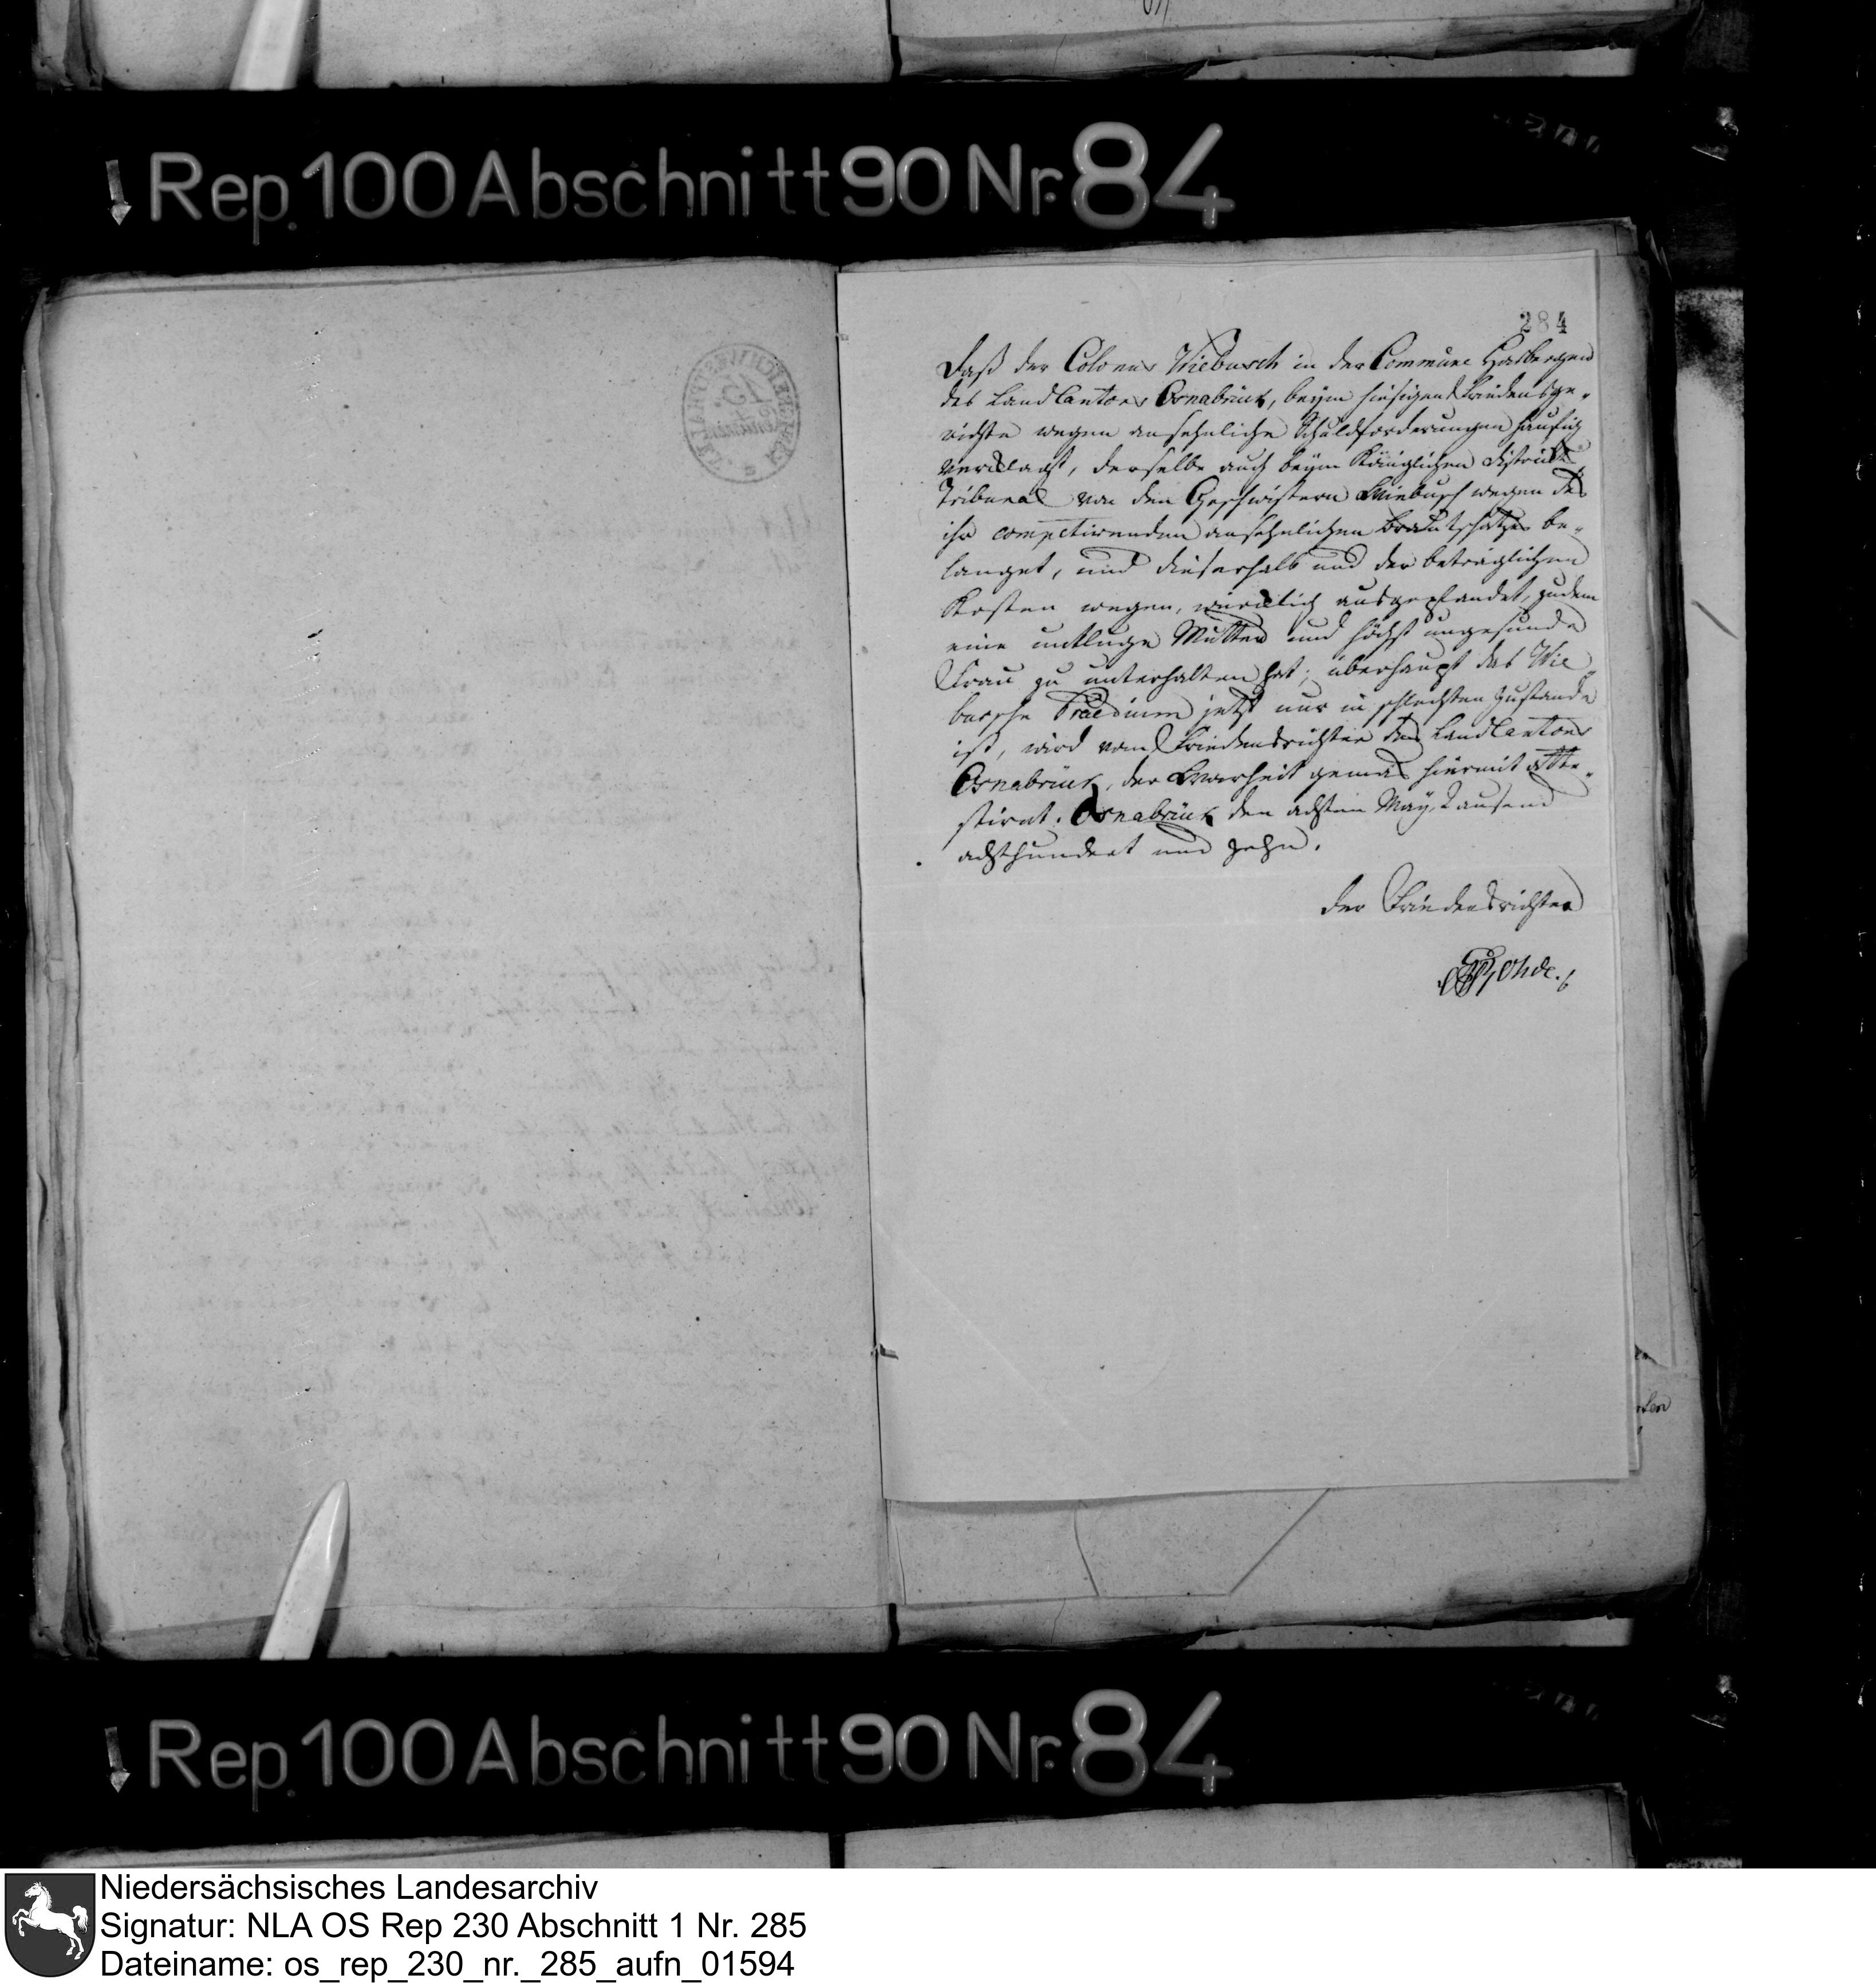 Rep. 100 Abschnitt 90 Nr. 84
284
Daß der Colonus Wiebusch in der Commüne Hasbergen
des Land Cantons Osnabrück, beÿm hiesigen Friedensge-
richte wegen ansehnliche Schuldforderungen häufig
verklagt, derselbe auch beÿm Königlichen District
Tribunal von den Geschwistern Wiebusch wegen des
ihr competirenden ansehnlichen Brautschatzes be-
langet, und dieserhalb und der beträglichen
Kosten wegen, würcklich ausgepfandet, zudem
eine unkluge Mutter und höchst ungesunde
Frau zu unterhalten hat; überhaupt das Wie-
busche Praedium jetzt nur in schlechten Zustande
ist, wird vom Friedensrichter des Land Cantons
Osnabrück, der Warheit gemäs hiermit atte-
stirat. Osnabrück den achten Maÿ Tausend
achthundert und zehn.
der Friedensrichter
15.
Rep. 100 Abschnitt 90 Nr. 84
Niedersächsisches Landesarchiv
Signatur: NLA OS Rep 230 Abschnitt 1 Nr. 285
Dateiname: os_rep_230_nr._285_aufn_01594